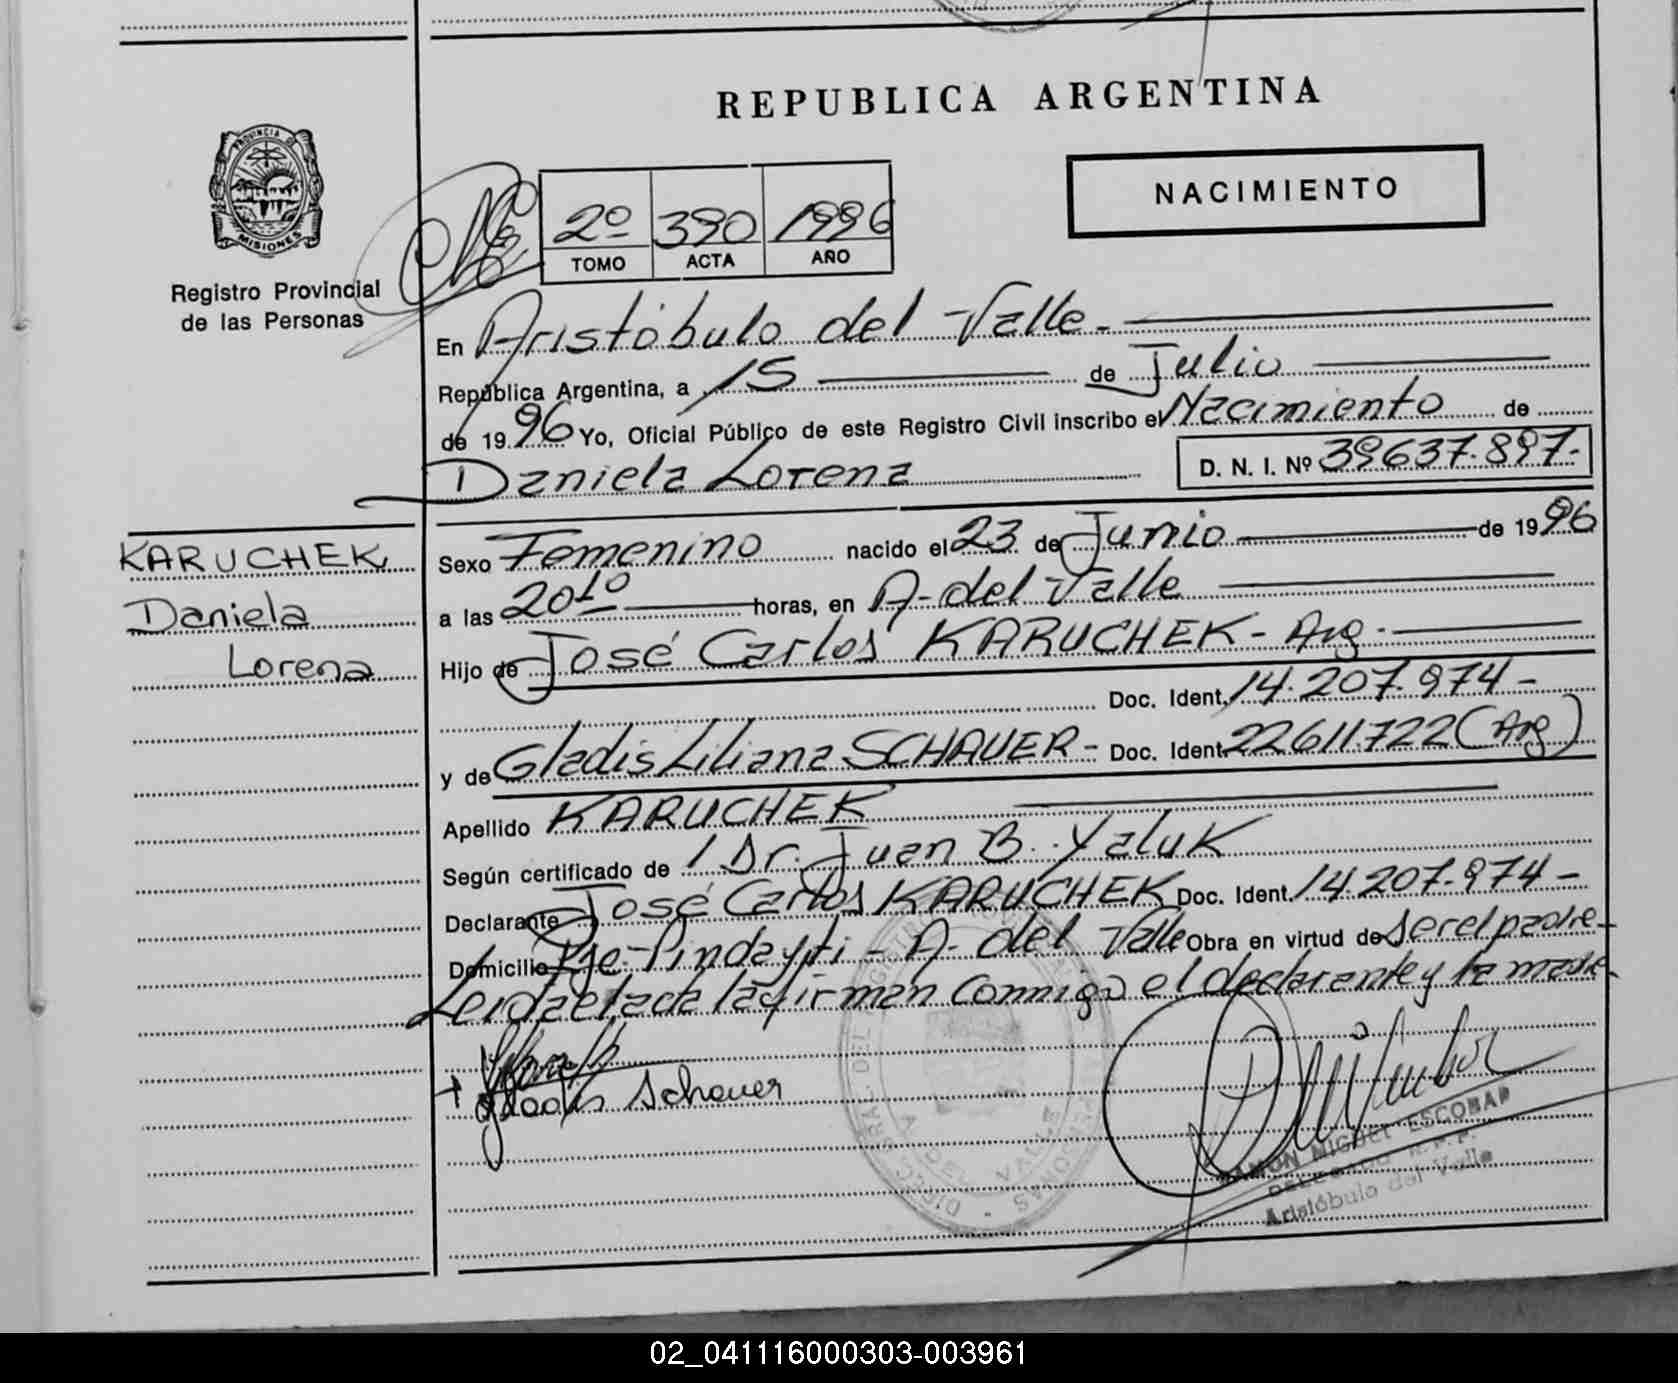 REPUBLICA ARGENTINA
PROVINCIA DE
MISIONES
Registro Provincial
de las Personas
2º 390 1996
TOMO ACTA AÑO
NACIMIENTO
En Aristóbulo del Valle.-
República Argentina, a 15 de Julio
de 1996 Yo, Oficial Público de este Registro Civil inscribo el Nacimiento de
Daniela Lorena D. N. I. Nº 39637.897.-
KARUCHEK,
Daniela
Lorena
Sexo Femenino nacido el 23 de Junio de 1996
a las 20¹⁰ horas, en A. del Valle
Hijo de José Carlos KARUCHEK - Arg.-
Doc. Ident. 14.207.974-
y de Gladis Liliana SCHAUER - Doc. Ident. 22611.722 (Arg)
Apellido KARUCHEK
Según certificado de Dr. Juan B. Yaluk
Declarante José Carlos KARUCHEK Doc. Ident. 14.207.974-
Domicilio Pje. Pindayti - A. del Valle Obra en virtud de ser el padre-
Leida el acta la firman conmigo el declarante y la madre
Schauer
RAMON MIGUEL ESCOBAR
DELEGADO R.P.P.
Aristóbulo del Valle
02_041116000303-003961